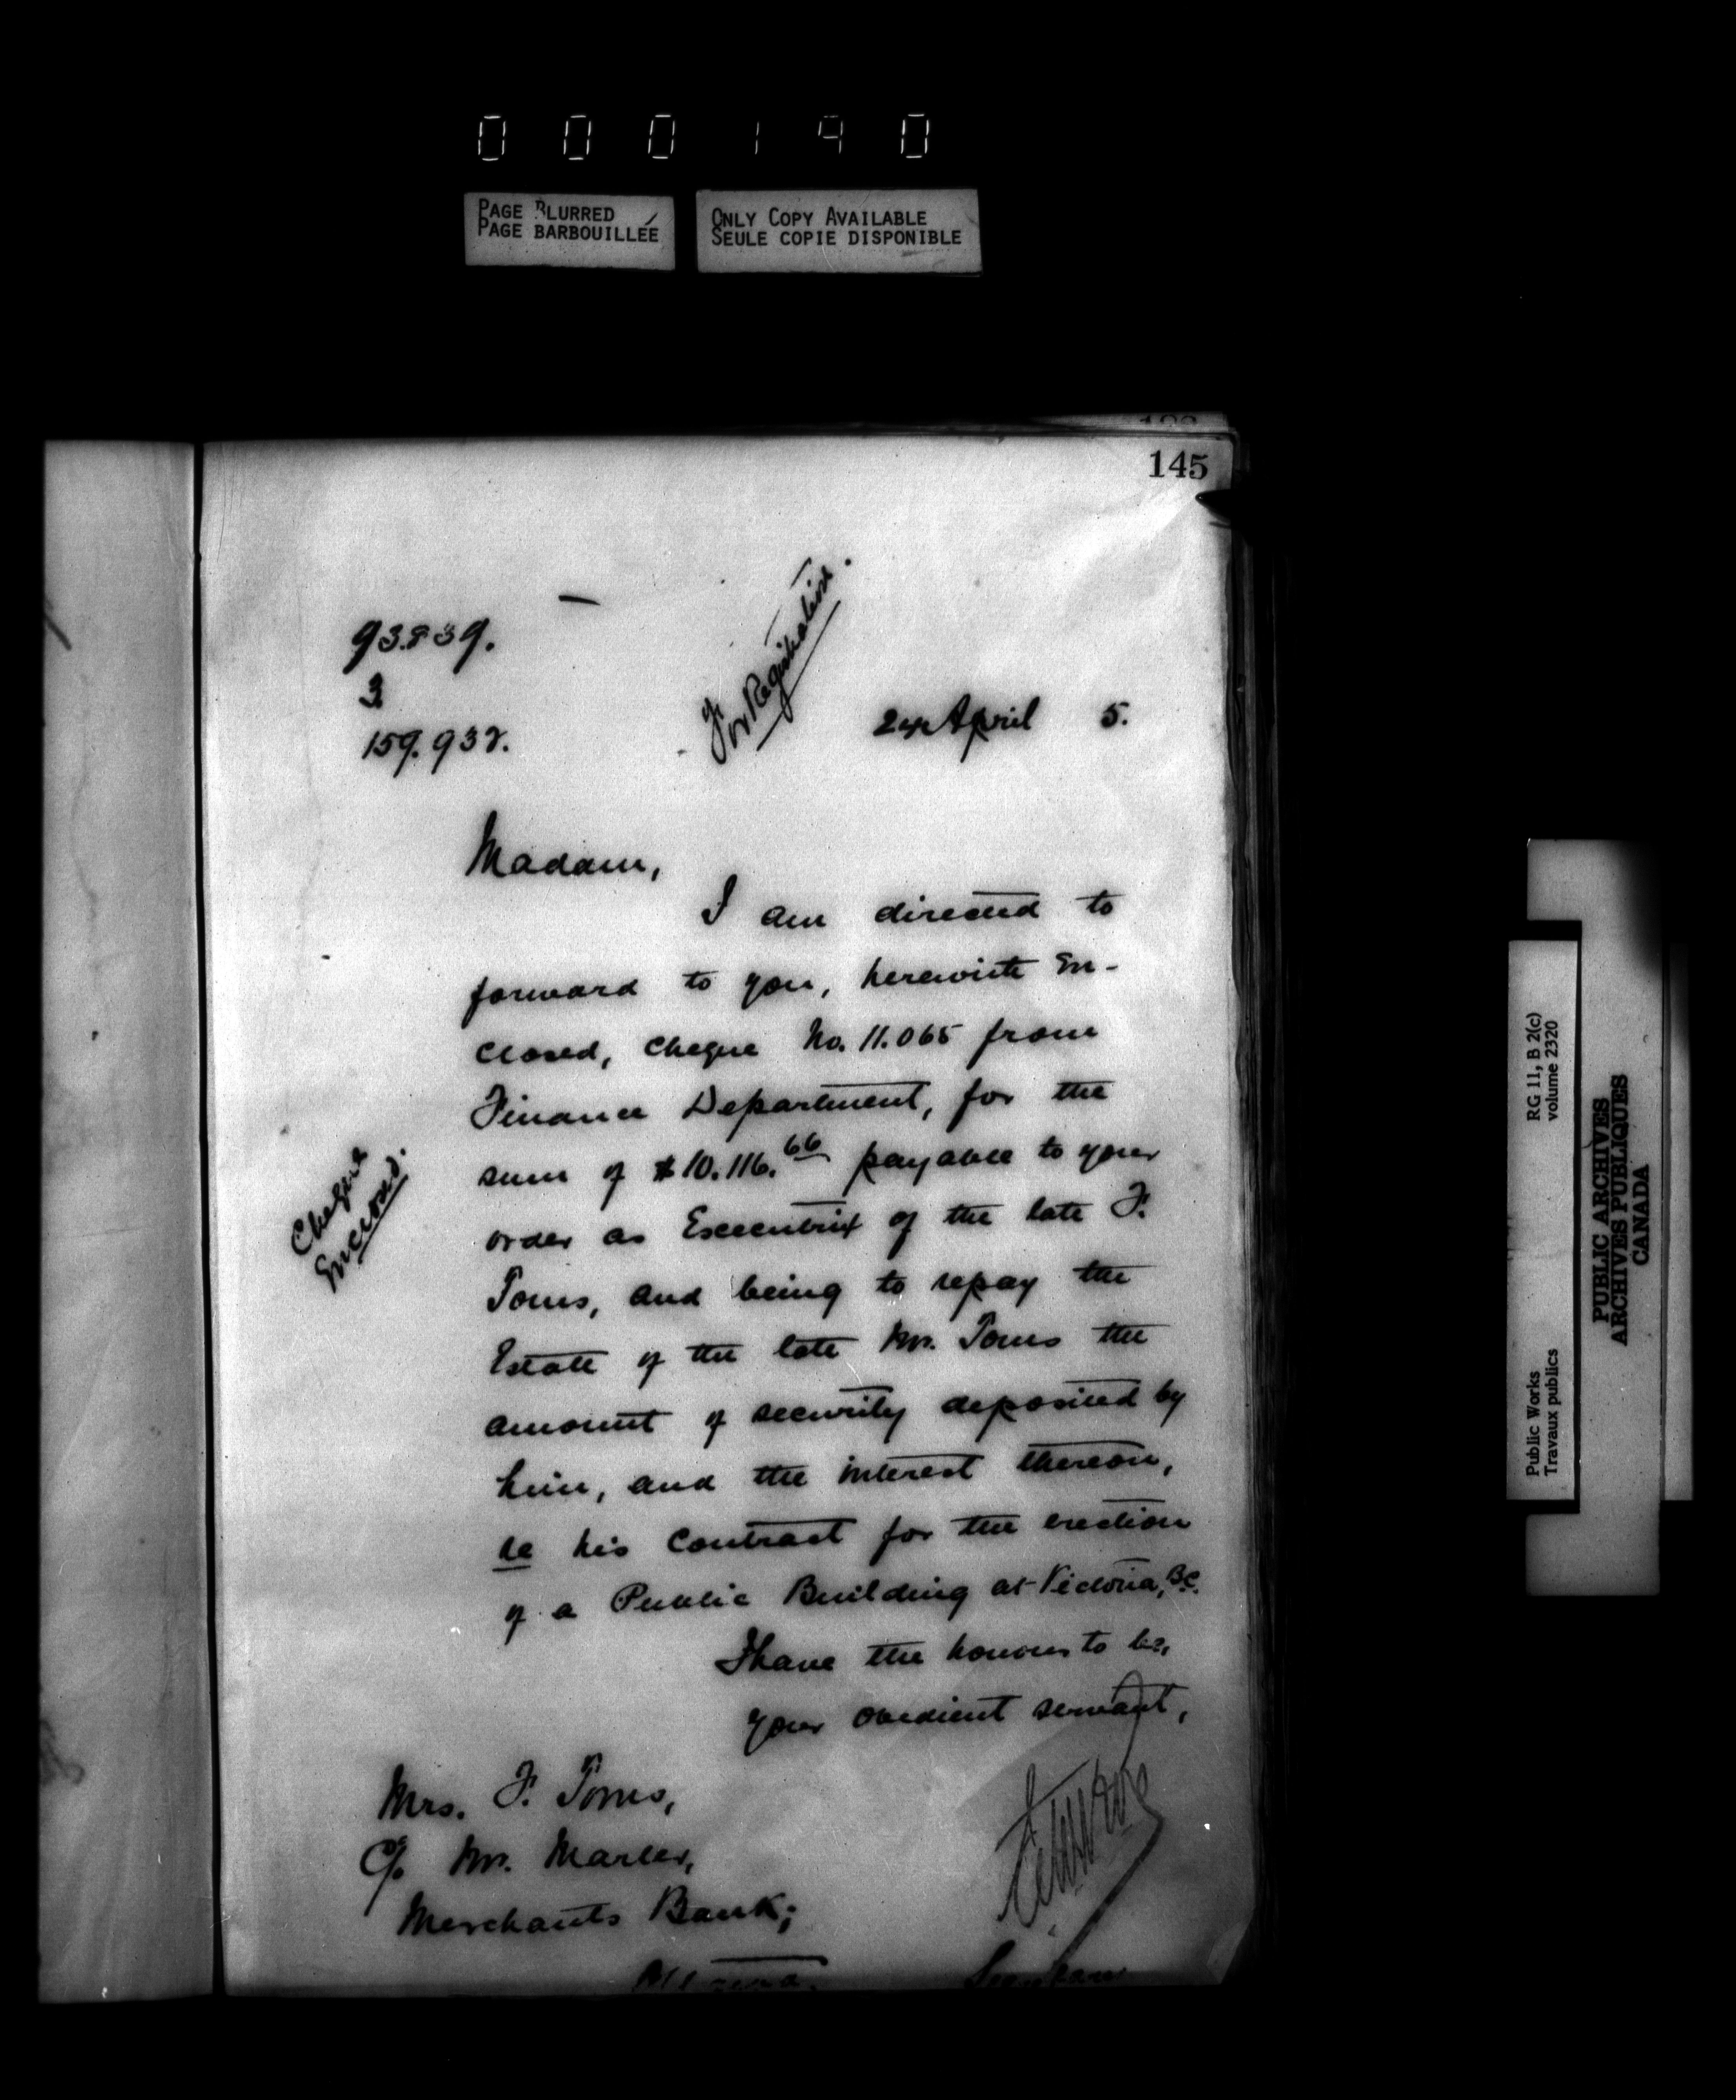 000190
PAGE BLURRED
PAGE BARBOUILLÉE
ONLY COPY AVAILABLE
SEULE COPIE DISPONIBLE
145
93.839.
3
159.932.
For Registration.
24 April 5.
Madam,
I am directed to
forward to you, herewith en-
closed, cheque No. 11.065 from
Finance Department, for the
sum of $10.116.66 payable to your
order as Executrix of the late F.
Toms, and being to repay the
Estate of the late Mr. Toms the
amount of security deposited by
him, and the interest thereon,
re his contract for the erection
of a Public Building at Victoria, B.C.
I have the honour to be,
Your obedient servant,
Cheque
Enclosed.
Mrs. F. Toms,
C/o Mr. Marler,
Merchants Bank;
Ottawa.
Secretary
Public Works
Travaux publics
RG 11, B 2(c)
volume 2320
PUBLIC ARCHIVES
ARCHIVES PUBLIQUES
CANADA